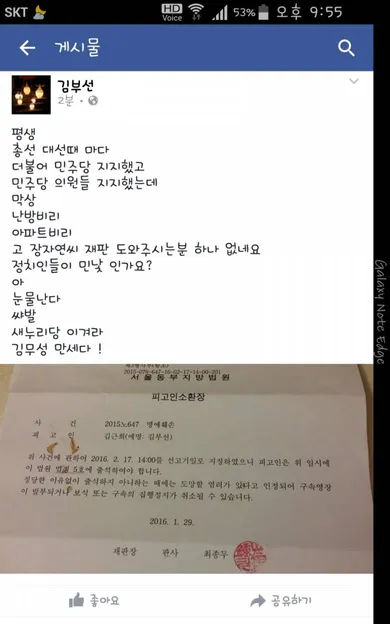 SKT HD Voice 53% 오후 9:55
게시물
김부선
2분
평생
총선 대선때 마다
더불어 민주당 지지했고
민주당 의원들 지지했는데
막상
난방비리
아파트비리
고 장자연씨 재판 도와주시는분 하나 없네요
정치인들이 민낯 인가요?
아
눈물난다
쌰발
새누리당 이겨라
김무성 만세다 !
Galaxy Note Edge
2015-079-647-16-02-17-14-00-201
서울동부지방법원
피고인소환장
사 건 2015노647 명예훼손
피 고 인 김근희(예명: 김부선)
위 사건에 관하여 2016. 2. 17. 14:00를 선고기일로 지정하였으니 피고인은 위 일시에
이 법원 법정 5호에 출석하여야 합니다.
정당한 이유없이 출석하지 아니하는 때에는 도망할 염려가 있다고 인정되어 구속영장
이 발부되거나 보석 또는 구속의 집행정지가 취소될 수 있습니다.
2016. 1. 29.
재판장 판사 최종두
좋아요 공유하기